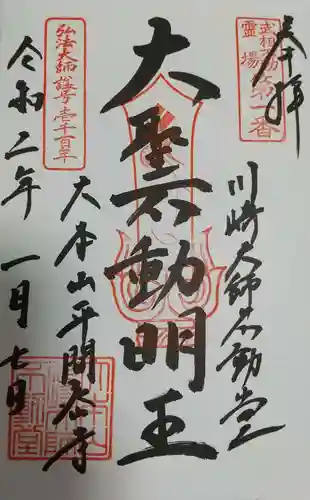 奉拝
武相不動
霊場
第一番
川崎大師不動堂
大聖不動明王
弘法大師諡号壱千百年
大本山平間寺
令和二年一月七日